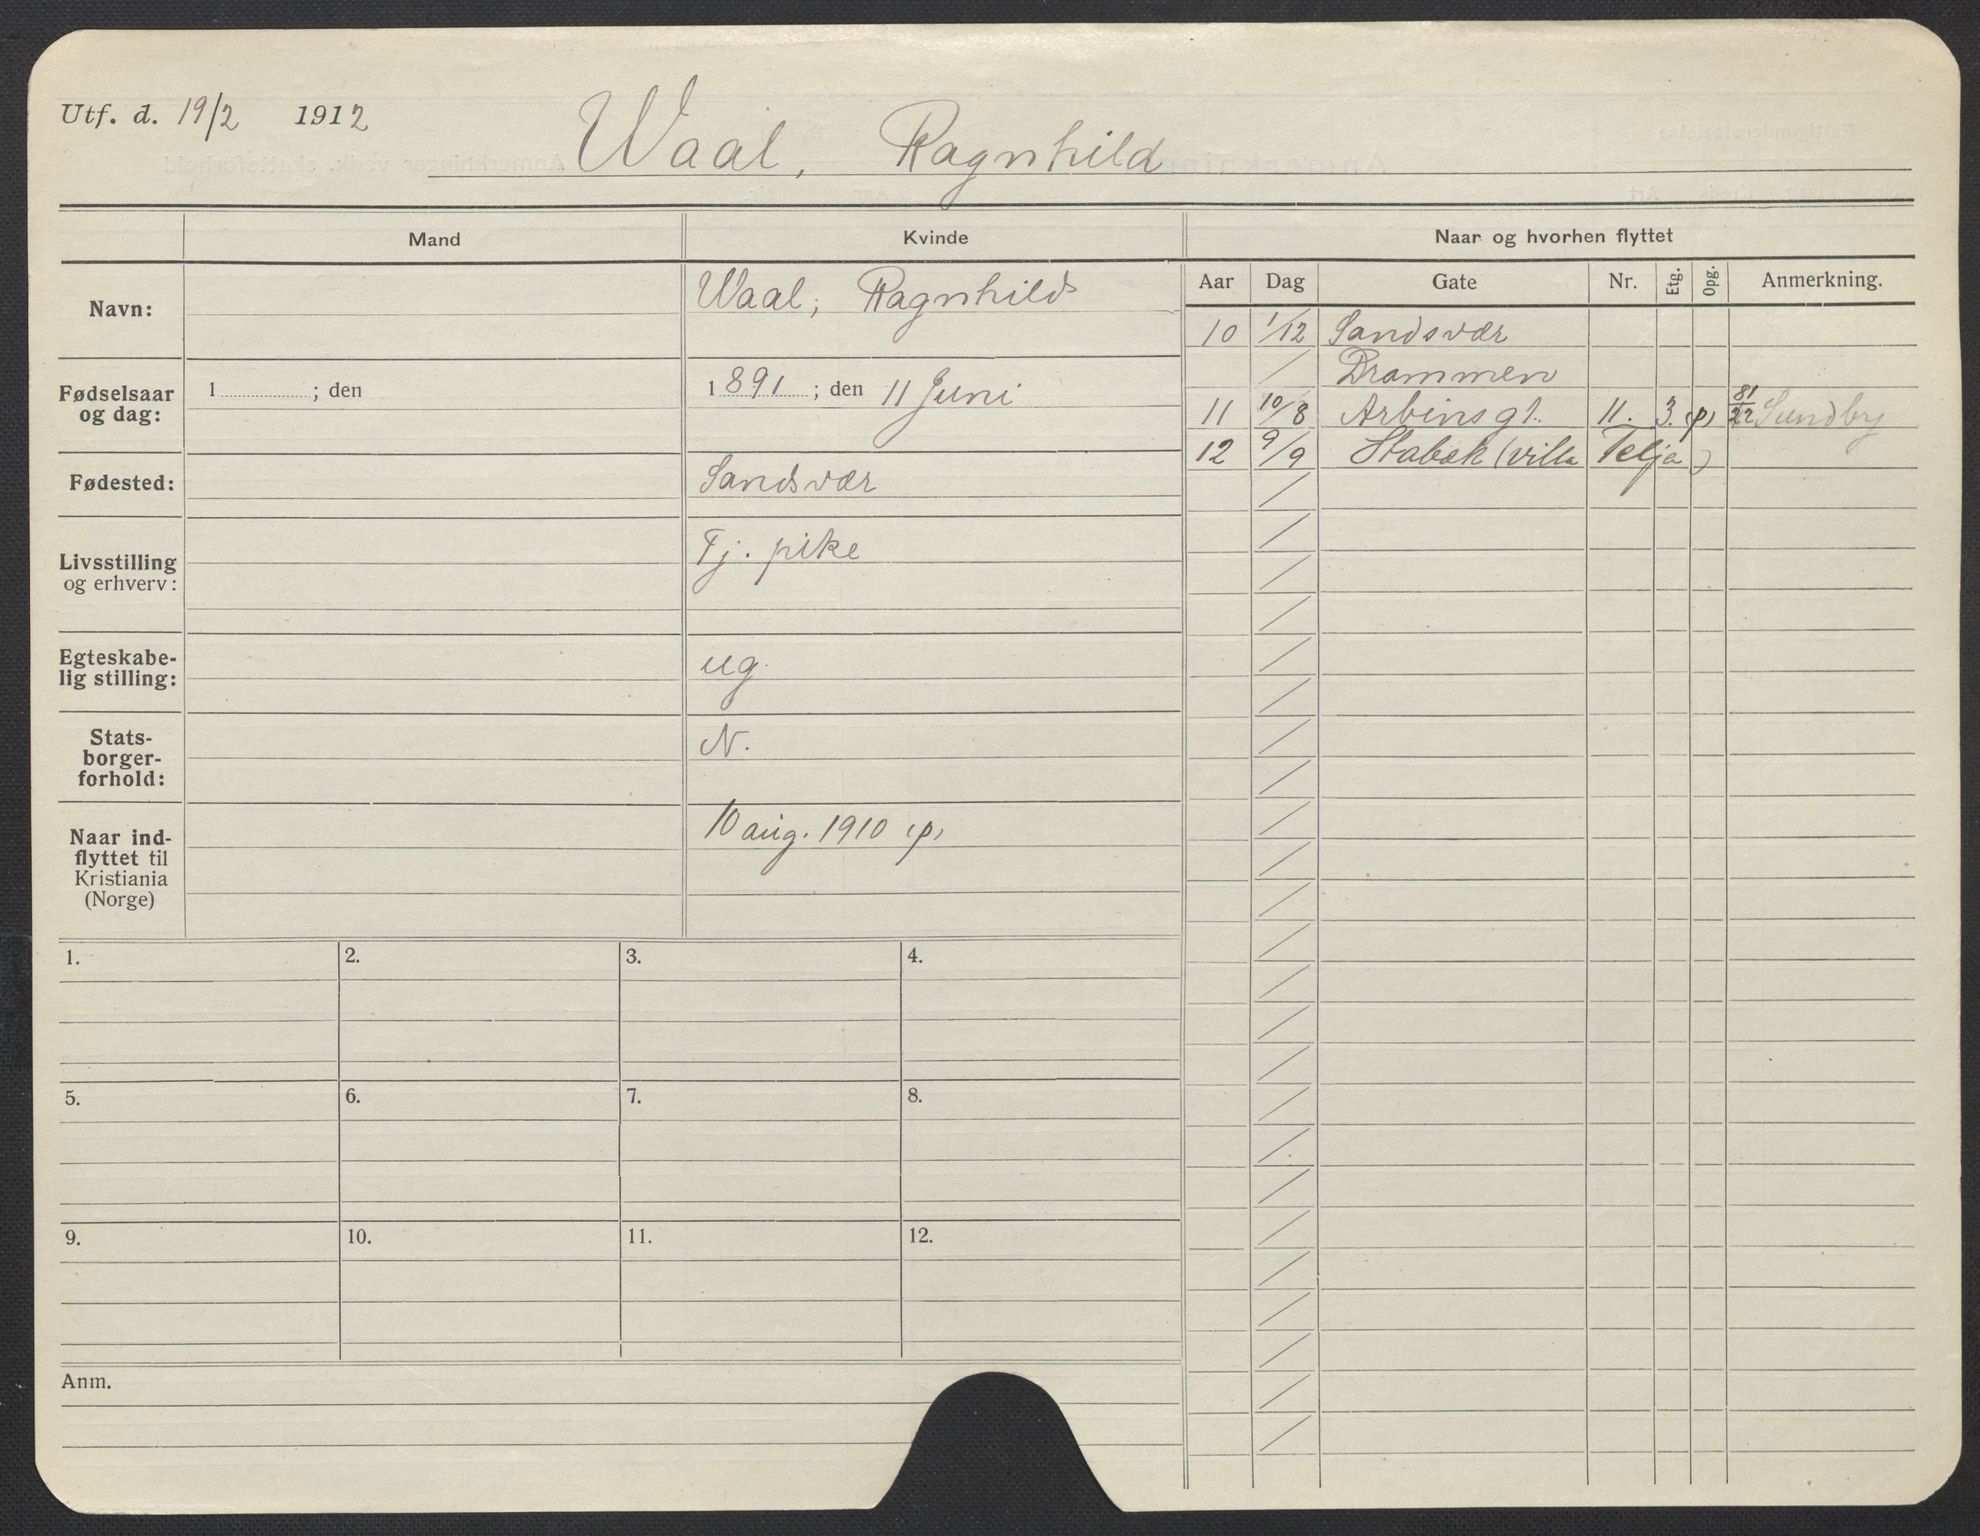 Utf. d. 19/2 1912
Waal, Ragnhild
Mand
Kvinde
Naar og hvorhen flyttet
Navn:
Waal, Ragnhild
Fødselsaar og dag:
1 ; den
1891 ; den 11 Juni
Fødested:
Sandsvær
Livsstilling og erhverv:
Tj. pike
Egteskabe-
lig stilling:
ug.
Stats-
borger-
forhold:
N.
Naar ind-
flyttet til
Kristiania
(Norge)
10 aug. 1910 (p)
Aar Dag Gate Nr. Etg. Opg. Anmerkning.
10 1/12 Sandsvær
Drammen
11 10/8 Arbinsgt. 11. 3. (p) 81/22 Sundby
12 9/9 Stabæk (villa Telja)
1. 2. 3. 4.
5. 6. 7. 8.
9. 10. 11. 12.
Anm.